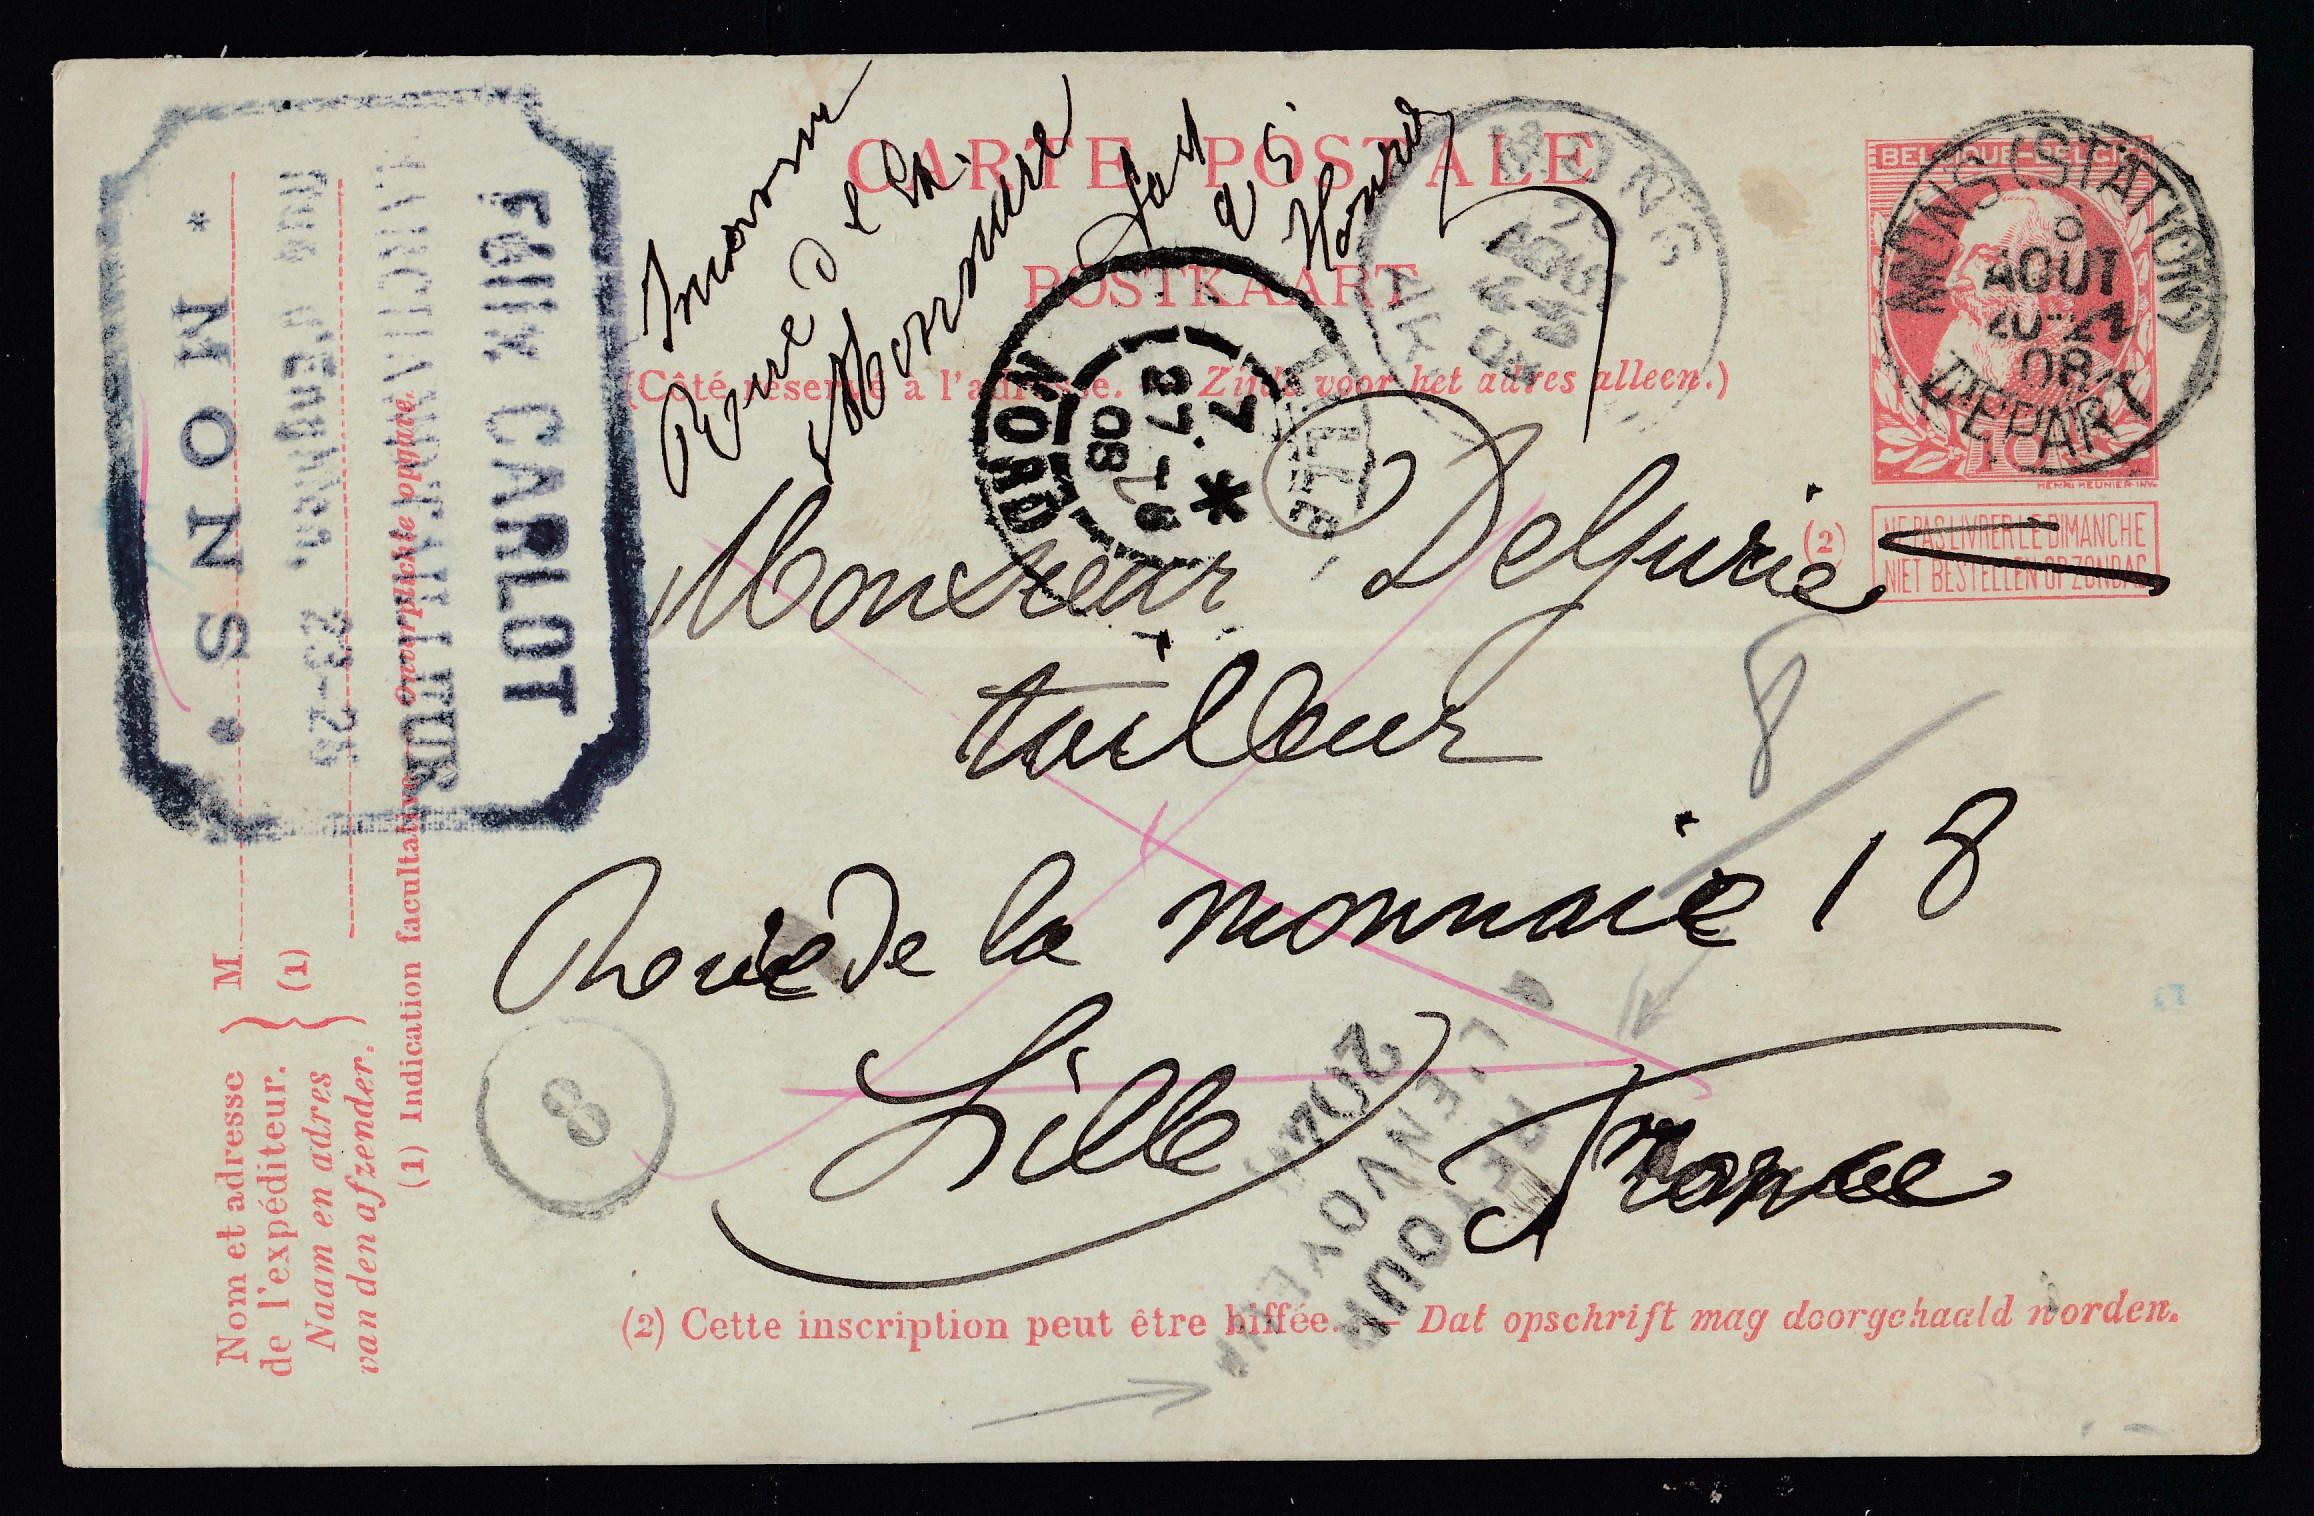 CARTE POSTALE
POSTKAART
(Côté réservé à l'adresse. — Zijde voor het adres alleen.)
BELGIQUE-BELGIË
10
HENRI MEUNIER INV.
(2)
NE PAS LIVRER LE DIMANCHE
NIET BESTELLEN OP ZONDAG
MONS (STATION)
8
AOUT
20-21
08
DEPART
MONS
AOUT
LILLE
NORD
*
7
27-
08
Inconnu
Rue de la
Monnaie
Félix CARLOT
rue d'Enghien, 23-25
* MONS *
Monsieur Delgurie
tailleur
Rue de la monnaie 18
Lille France
8
8
RETOUR
A L'ENVOYEUR
204
Nom et adresse
de l'expéditeur.
Naam en adres
van den afzender.
M
(1)
(1) Indication facultative — Onverplichte opgave.
(2) Cette inscription peut être biffée. — Dat opschrift mag doorgehaald worden.